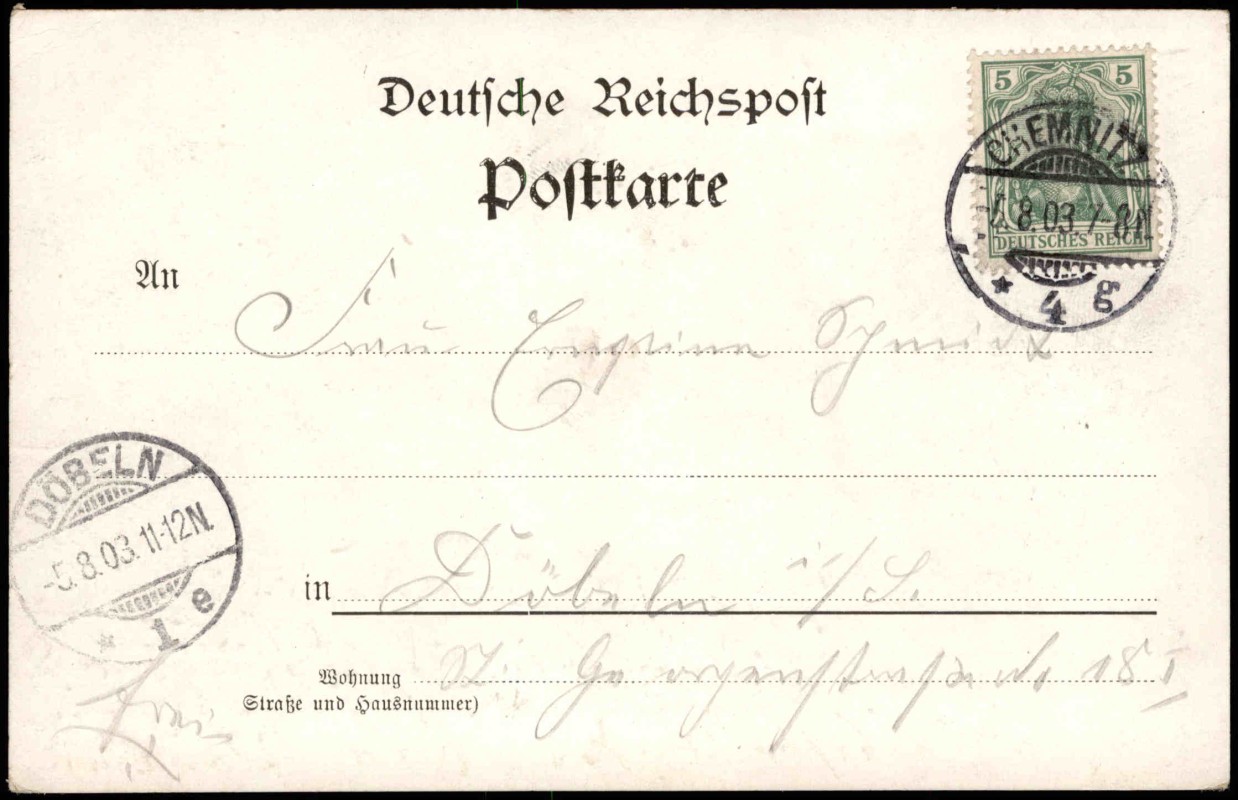 Deutsche Reichspost
Postkarte
5 5
DEUTSCHES REICH
CHEMNITZ
8.03. 7-8N.
* 4 g
An
Frau Ernestine Schmidt
DÖBELN
-5.8.03.11-12N.
* 1 e
in Döbeln i/S.
Wohnung
Straße und Hausnummer)
St. Georgenstraße 18 I
frei